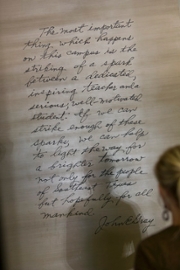 The most important
thing which happens
on this campus is the
striking of a spark
between a dedicated,
inspiring teacher and a
serious, well-motivated
student. If we can
strike enough of these
sparks, we can help
to light the way for
a brighter tomorrow
not only for the people
of Texas
but hopefully for all
mankind.
John Gray